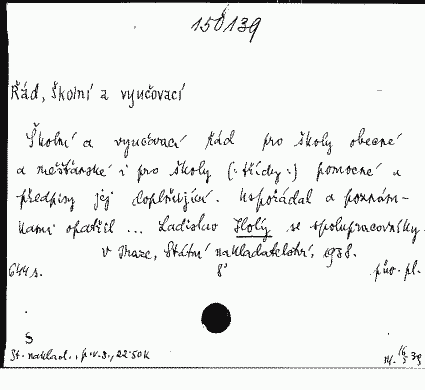 150139
Řád, Školní a vyučovací
Školní a vyučovací řád pro školy obecné
a měšťanské i pro školy (:třídy:) pomocné a
předpisy jej doplňující. Uspořádal a poznám-
kami opatřil ... Ladislav Holý se spolupracovníky.
V Praze, Státní nakladatelství, 1938.
644 s. 8° pův. pl.
S
St. naklad., p.v.s., 22·50 K